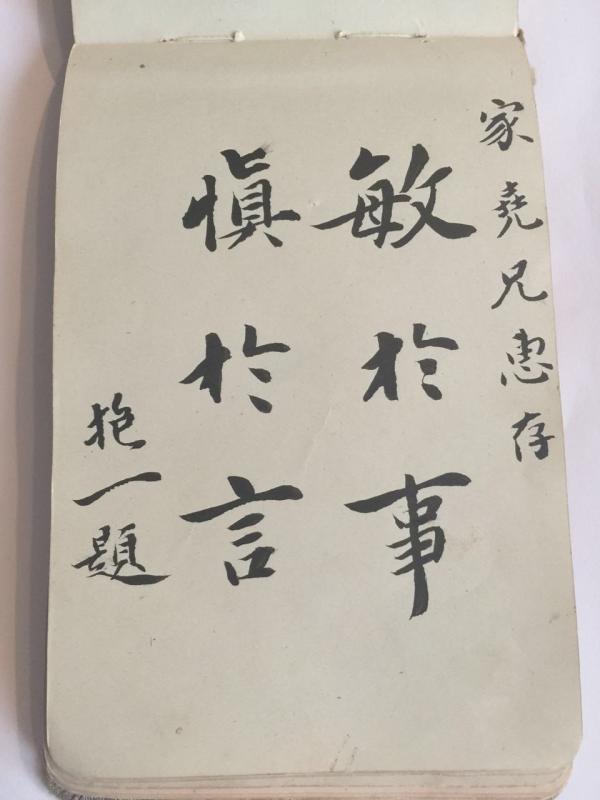 家堯兄惠存
敏於事
慎於言
抱一題